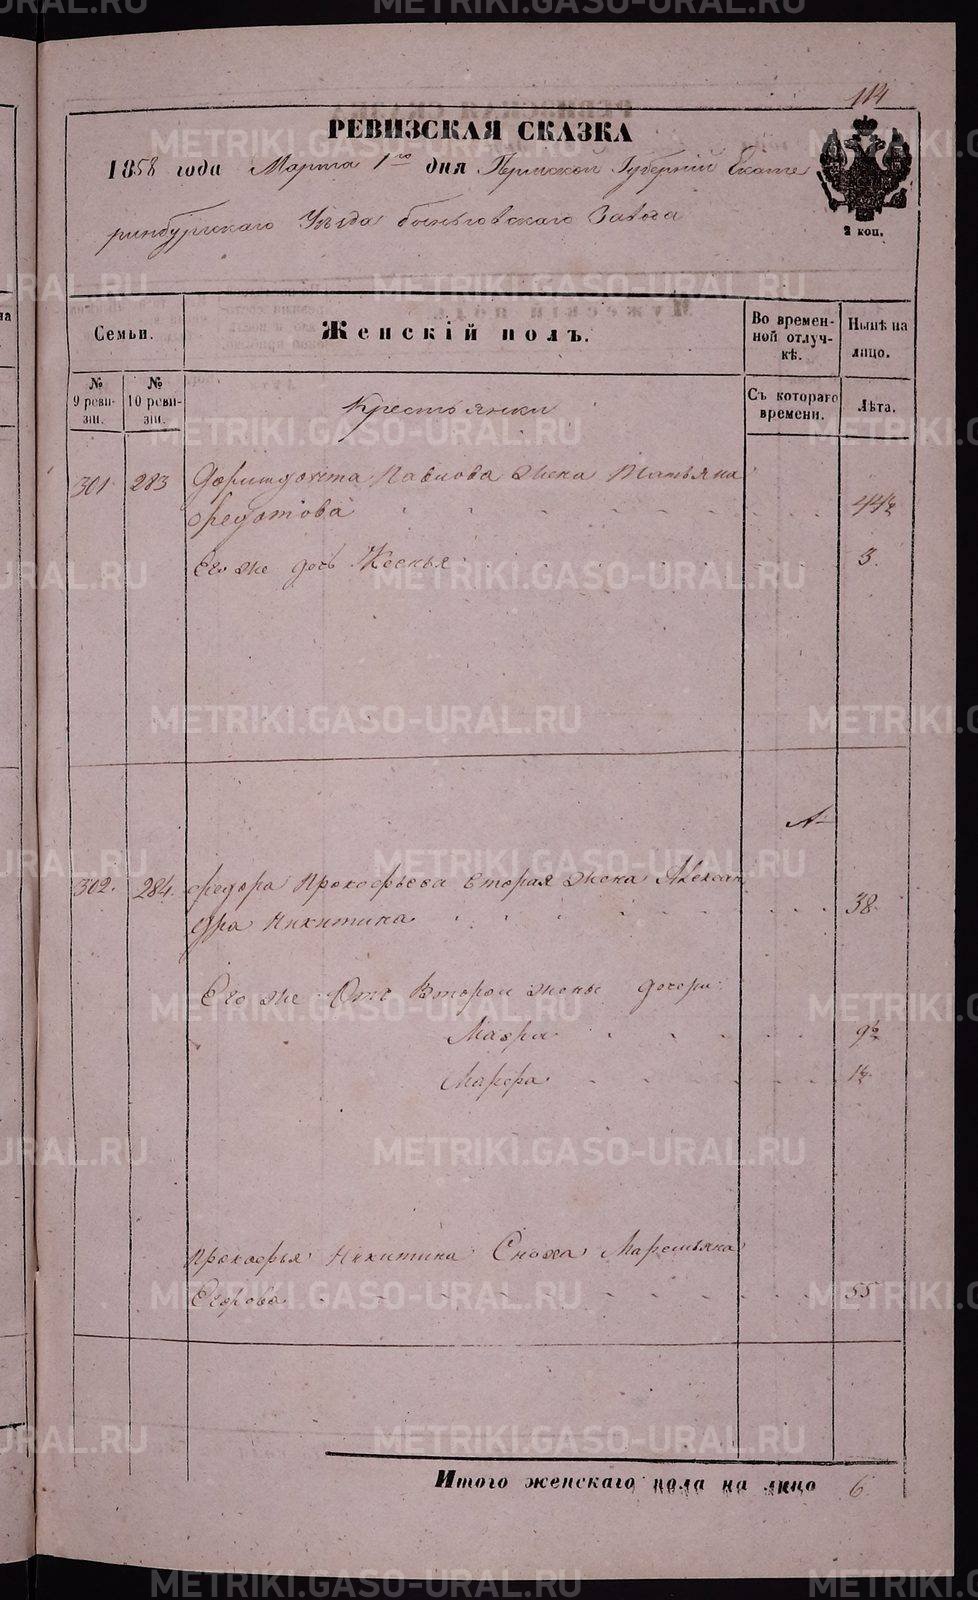 114
РЕВИЗСКАЯ СКАЗКА
1858 года Марта 1го дня Пермской Губерніи Екате
ринбургскаго Уезда Быньговскаго Завода
2 коп.
Семьи.
Женскій полъ.
Во времен-
ной отлуч-
кѣ.
Нынѣ на
лицо.
№
9 реви-
зіи.
№
10 реви-
зіи.
Крестьянки
Съ котораго
времени.
Лѣта.
301 283 Павлова жена Татьяна
Федотова 44½
Его же дочь Ксенья 3.
302. 284. Федора Прокофьева вторая жена Алексан
дра Никитина 38
Его же Отъ Второй жены дочери:
Мавра
Марфа
Прокофья Никитина Сноха Маремьяна
Егорова 55
Итого женскаго пола на лицо 6
METRIKI.GASO-URAL.RU